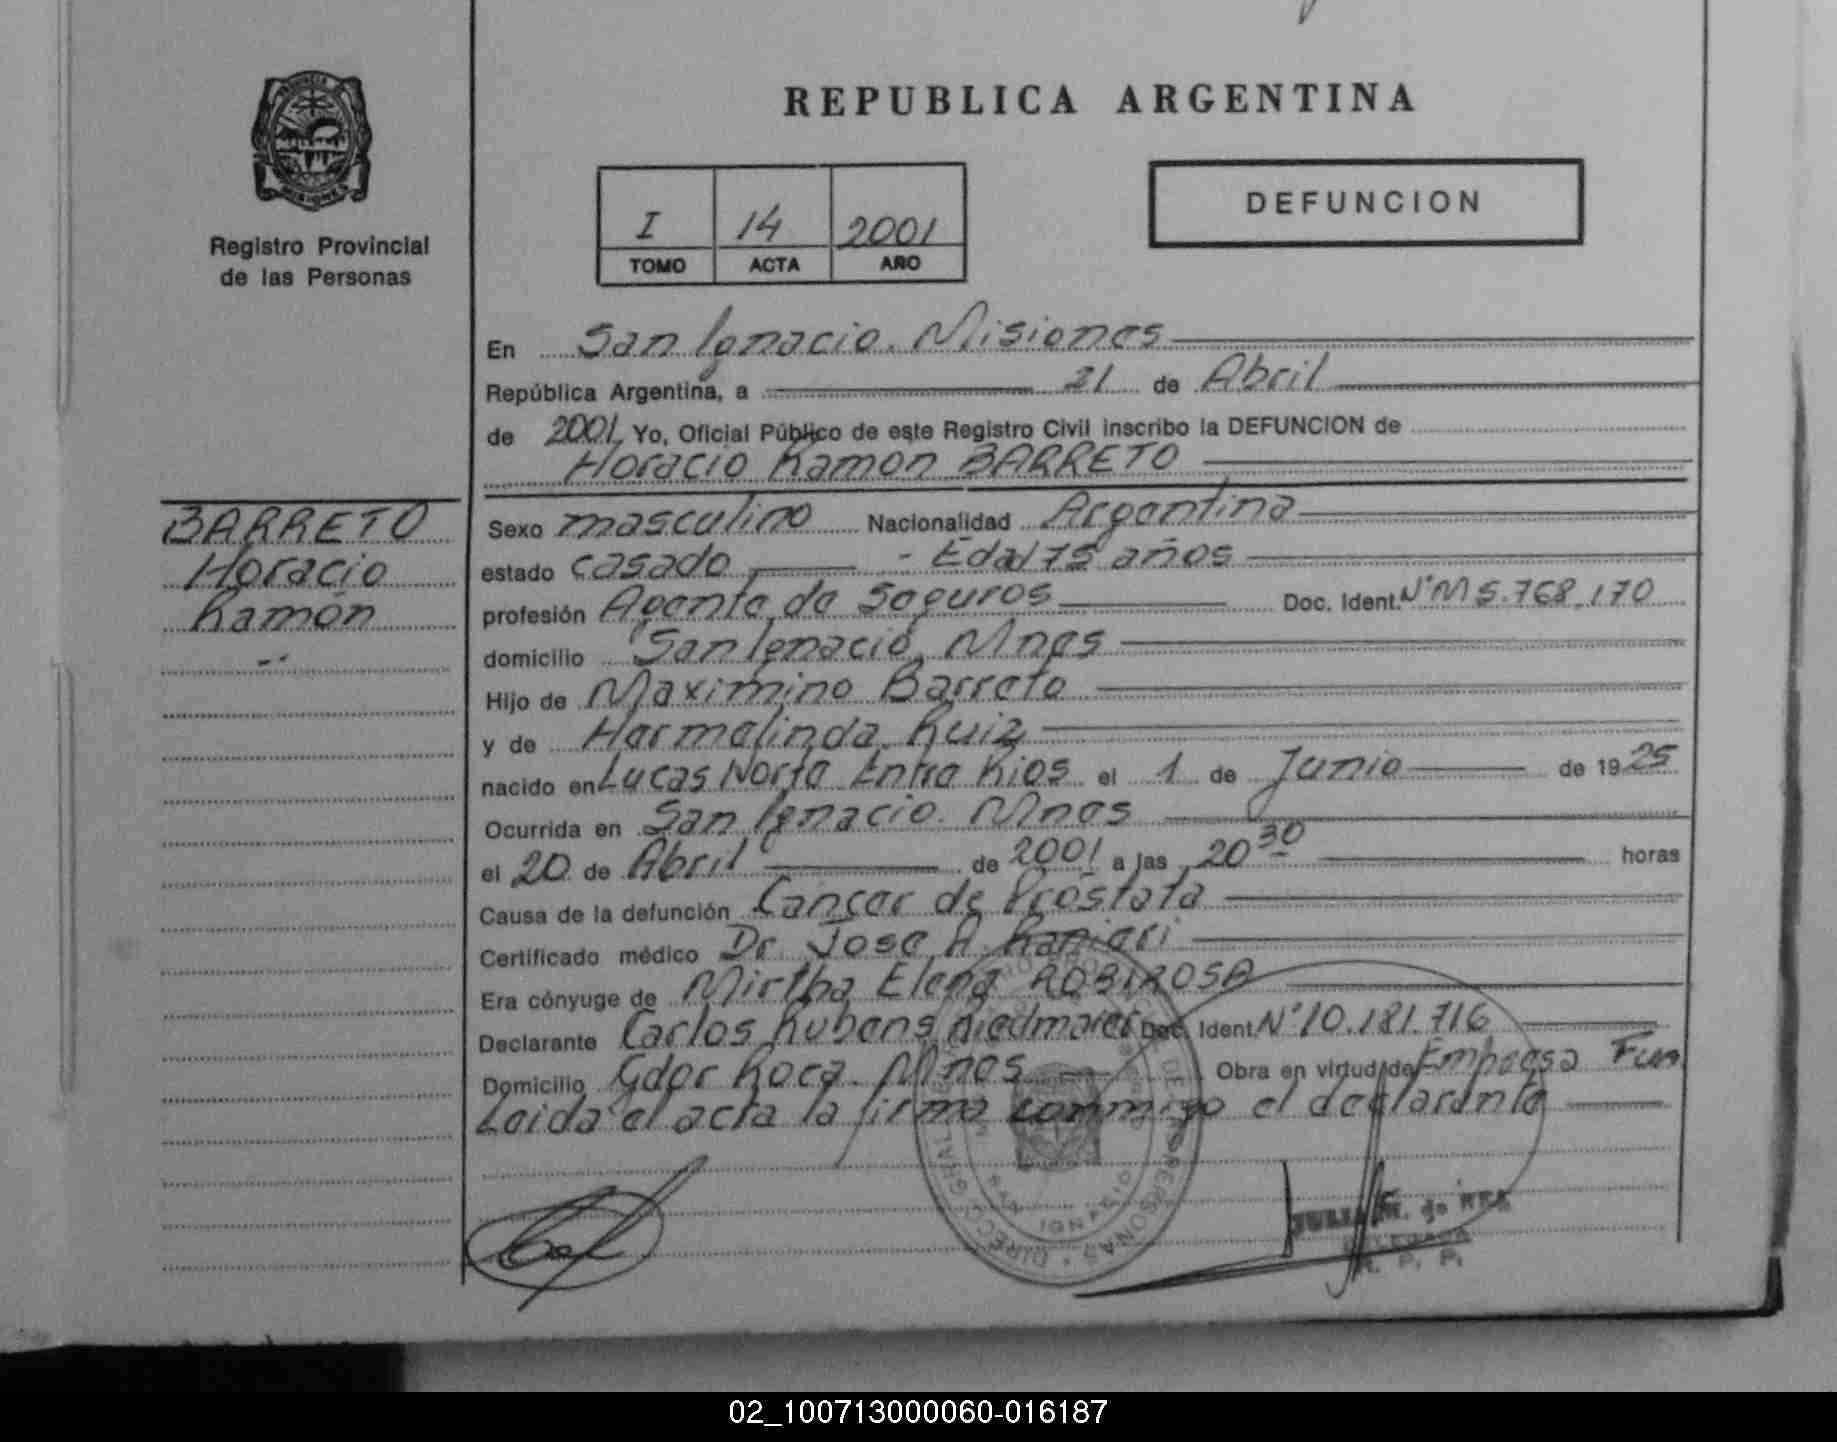 REPUBLICA ARGENTINA
PROVINCIA
MISIONES
Registro Provincial
de las Personas
I 14 2001
TOMO ACTA AÑO
DEFUNCION
En San Ignacio. Misiones
República Argentina, a 21 de Abril
de 2001 Yo, Oficial Público de este Registro Civil inscribo la DEFUNCION de
Horacio Ramon BARRETO
BARRETO
Horacio
Ramón
Sexo masculino Nacionalidad Argentina
estado casado - Edad 75 años
profesión Agente de Seguros Doc. Ident. Nº M 5.768.170
domicilio San Ignacio, Mnes
Hijo de Maximino Barreto
y de Hermelinda Ruiz
nacido en Lucas Norte Entre Rios el 1 de Junio de 1925
Ocurrida en San Ignacio. Mnes
el 20 de Abril de 2001 a las 20 30 horas
Causa de la defunción Cancer de Próstata
Certificado médico Dr. Jose A. Ranieri
Era cónyuge de Mirtha Elena ROBIROSA
Declarante Carlos Rubens Riedmaier Doc. Ident. Nº 10.181.716
Domicilio Gdor Roca. Mnes Obra en virtud de Empresa Fun
Leida el acta la firma conmigo el declarante
DE LAS PERSONAS
DELEGADA
R. P. P.
02_100713000060-016187